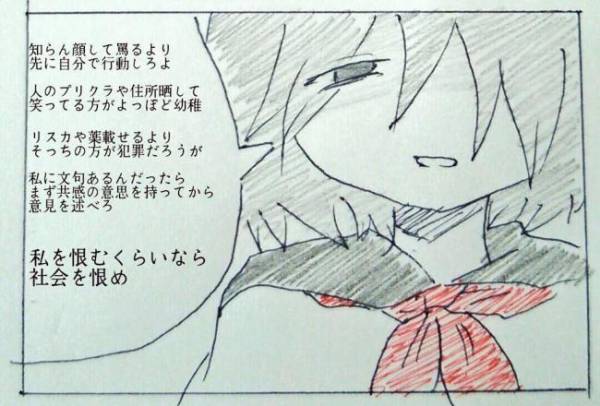 知らん顔して罵るより
先に自分で行動しろよ
人のプリクラや住所晒して
笑ってる方がよっぽど幼稚
リスカや薬載せるより
そっちの方が犯罪だろうが
私に文句あるんだったら
まず共感の意思を持ってから
意見を述べろ
私を恨むくらいなら
社会を恨め